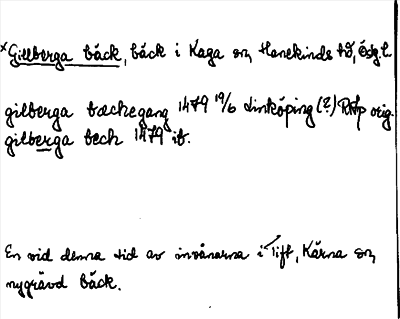 ×Gillberga bäck, bäck i Kaga sn, Hanekinds hd, Östg. l.
gilberga bæchegang 1479 19/6 Linköping (?) RAp orig.
gilberga bech 1479 ib.
En vid denna tid av invånarna i Tift, Kärna sn,
nygrävd bäck.